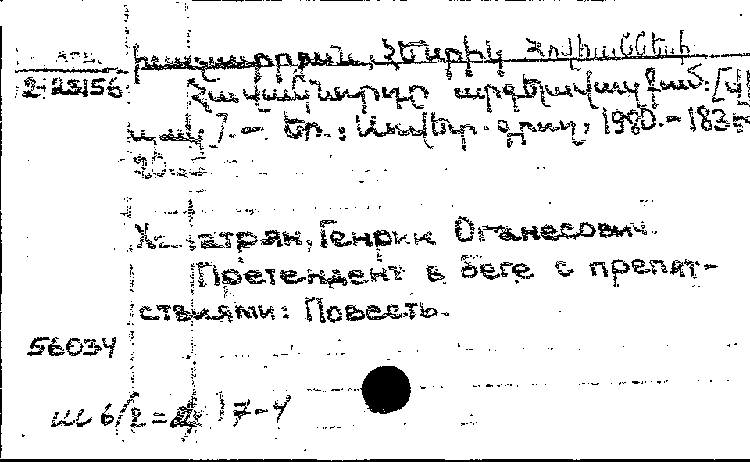 Խաչատրյան, Հենրիկ Հովհաննեսի
2-23156
Հավակնորդը արգելավազքում: [Վի
պակ]. — Եր.: Սովետ. գրող, 1980. — 183 
20 
Хачатрян, Генрик Оганесович.
Претендент в беге с препят-
ствиями: Повесть.
56034
Ш6(2=Ар)7-4